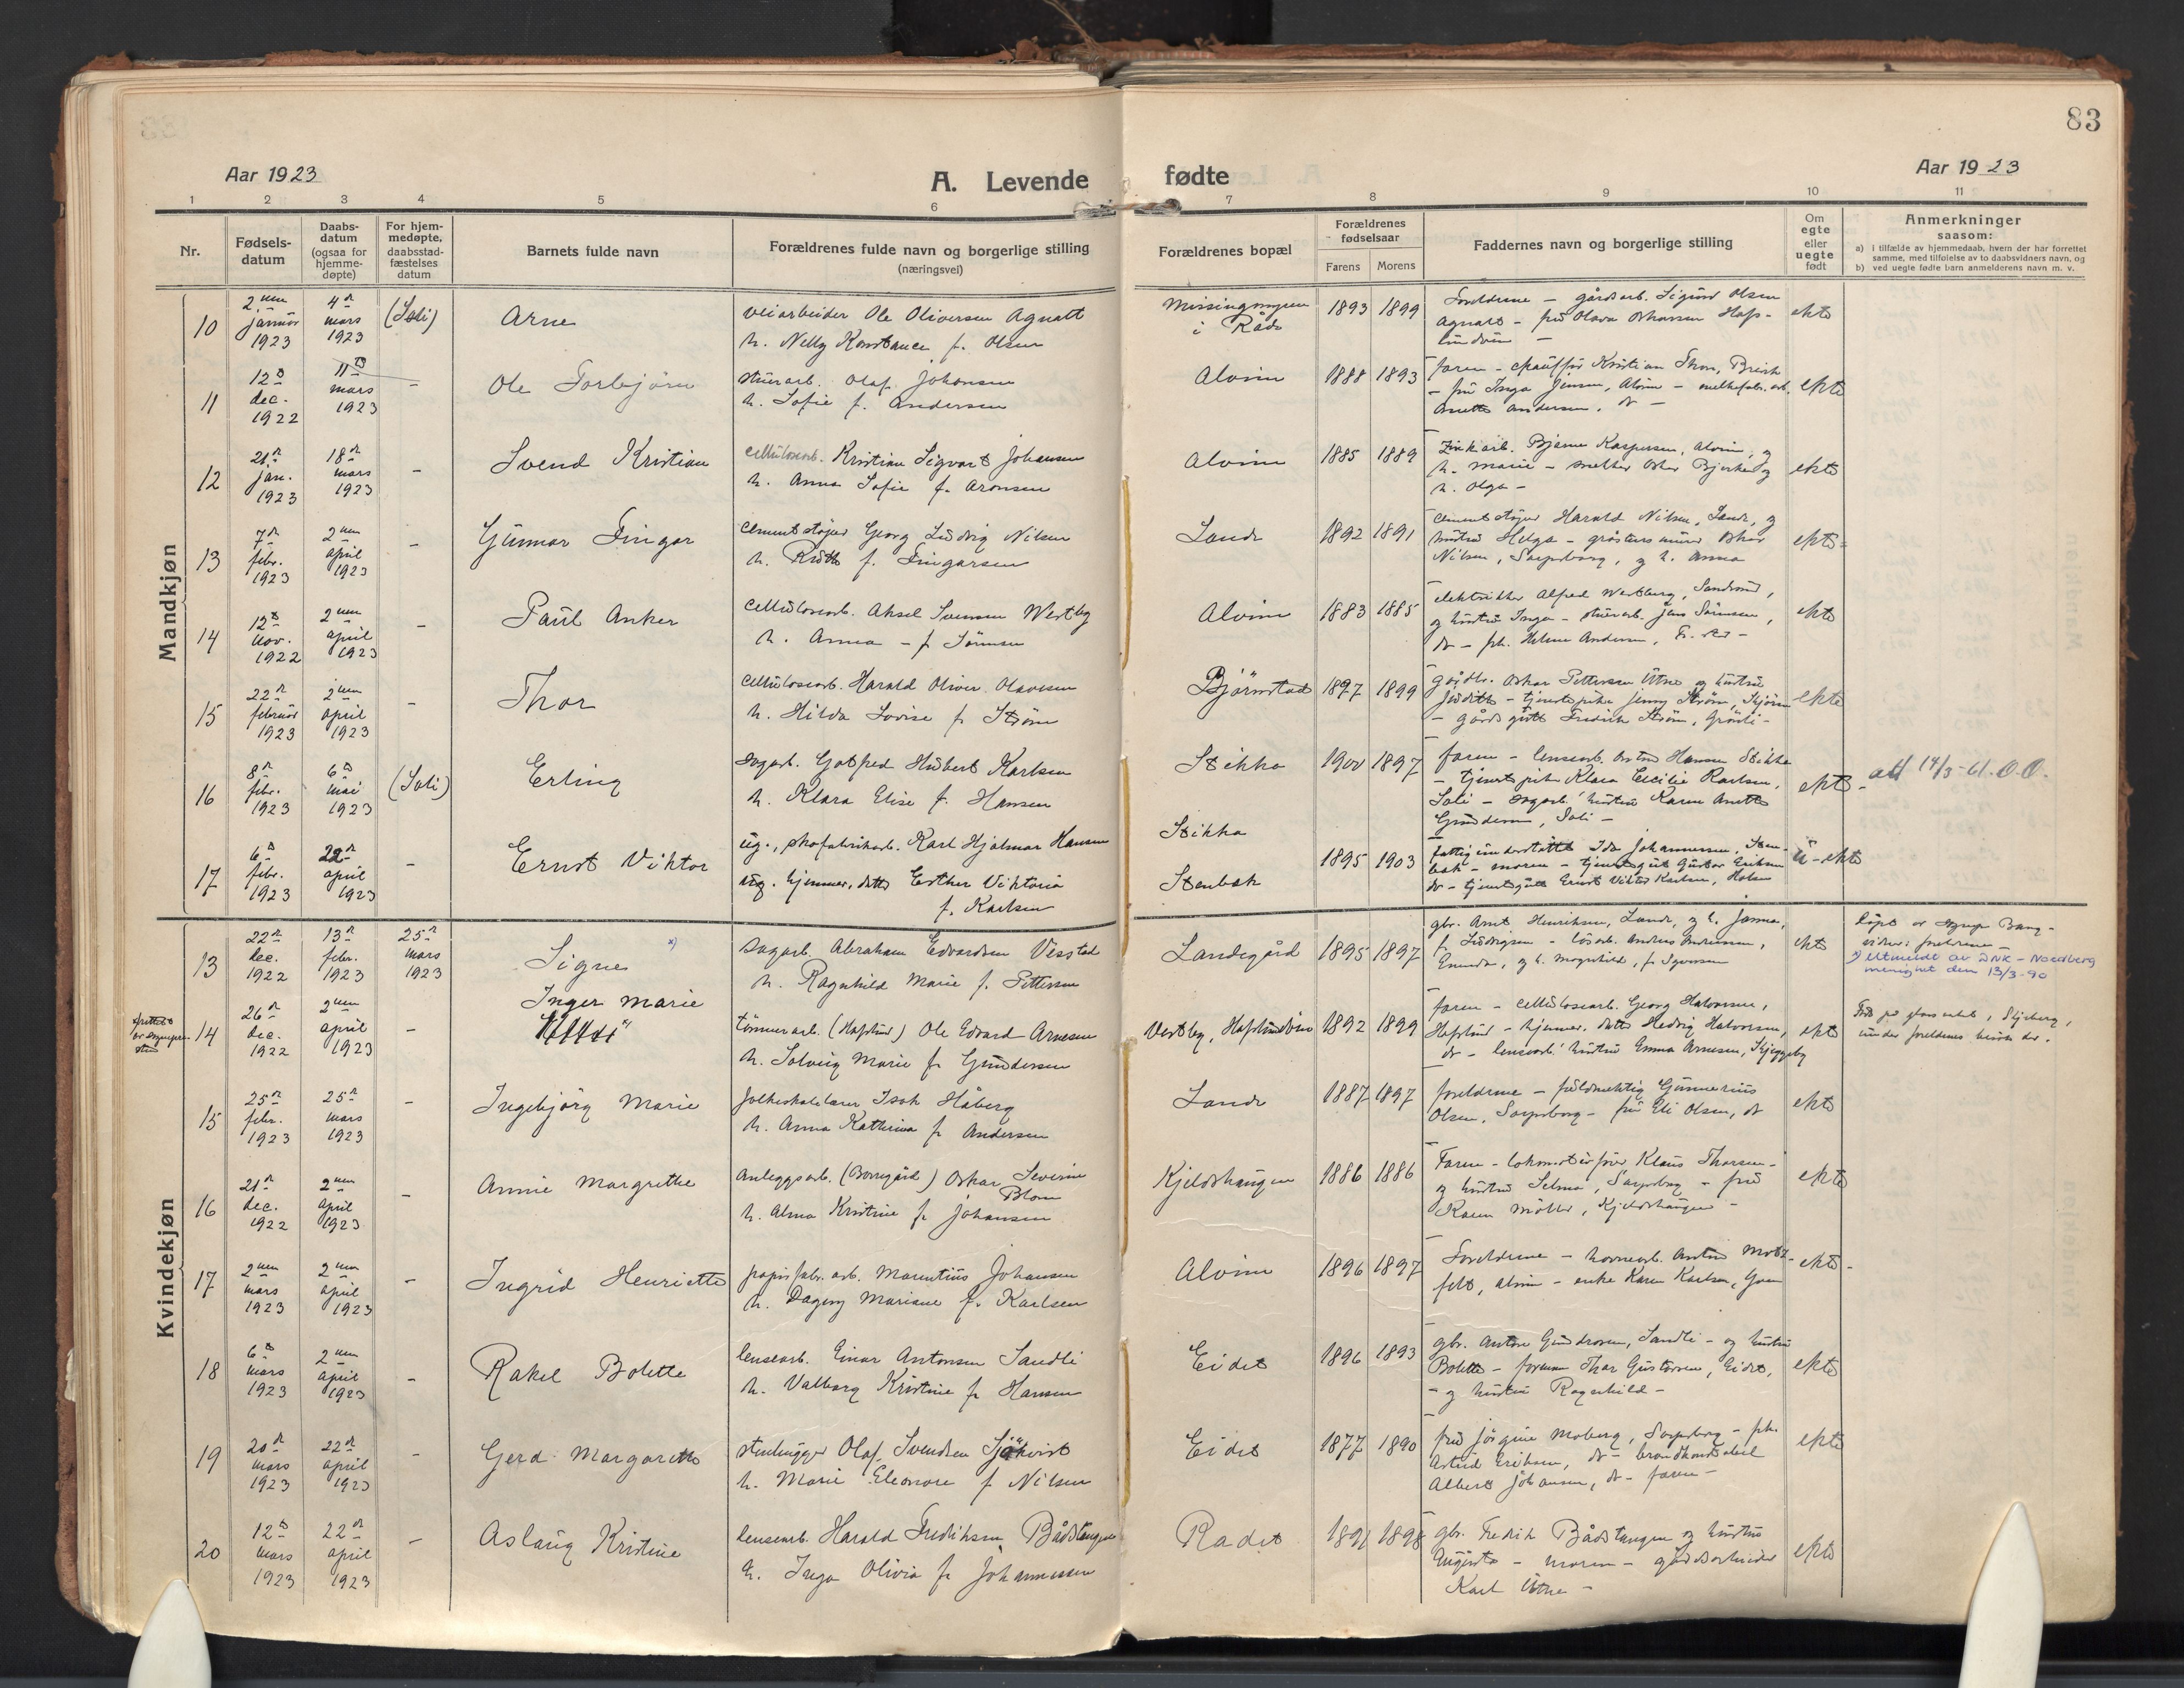 83
Aar 1923
A. Levende
fødte
Aar 1923
1 2 3 4 5 6 7 8 9 10 11
Nr.
Fødsels-
datum
Daabs-
datum
(ogsaa for
hjemme-
døpte)
For hjem-
medøpte,
daabsstad-
fæstelses
datum
Barnets fulde navn
Forældrenes fulde navn og borgerlige stilling
(næringsvei)
Forældrenes bopæl
Forældrenes
fødselsaar
Farens Morens
Faddernes navn og borgerlige stilling
Om
egte
eller
uegte
født
Anmerkninger
saasom:
a) i tilfælde av hjemmedaab, hvem der har forrettet
samme, med tilføielse av to daabsvidners navn, og
b) ved uegte fødte barn anmelderens navn m. v.
Mandkjøn
10
2nen januar 1923
4de mars 1923
(Soli)
Arne
veiarbeider Ole Oliversen Agnalt
h. Nelly Konstance f. Olsen
Missingmyren
i Råde
1893 1899
Foreldrene – gårdsarb. Sigurd Olsen
Agnalt – fru Olava Johansen Hafs-
lundsøen –
ekte
11
12te dec. 1922
11te mars 1923
–
Ole Torbjørn
stuerarb. Olaf Johansen
h. Sofie f. Andersen
Alvim
1888 1893
faren – chauffør Kristian Thon,
– fru Inga Jensen, Alvim –
Anette Andersen, do –
ekte
12
21de jan. 1923
18de mars 1923
–
Svend Kristian
cellulosearb. Kristian Sigvart Johansen
h. Anna Sofie f. Aronsen
Alvim
1885 1889
Zinkarb. Bjarne Kaspersen, Alvim, og
h. Marie – smelter Oskar Bjerke og
h. Olga –
ekte
13
7de febr. 1923
2nen april 1923
–
Gunnar Fingar
cementstøper Georg Ludvig Nilsen
h. Ruth f. Fingarsen
Lande
1892 1891
cementstøper Harald Nilsen, Lande, og
hustru Helga – Oskar
Nilsen, Sarpsborg, og h. Anna
ekte
14
12te nov. 1922
2nen april 1923
–
Paul Anker
cellulosearb. Aksel Svensen Westby
h. Anna – f. Sørensen
Alvim
1883 1885
elektriker Alfred Westberg, Sandesund,
og hustru Inga – stuerarb. Jens Sørensen,
do – frk. Helene Andersen, Fr.stad –
ekte
15
22de februar 1923
2nen april 1923
–
Thor
cellulosearb. Harald Oliver Olavesen
h. Hilda Lovise f. Strøm
Bjørnstad
1897 1899
Oskar Pettersen Utne og hustru
Judith – tjenestepike Jenny Strøm, Skjøren
– gårdsgutt Fredrik Strøm, Grønli –
ekte
16
8de febr. 1923
6te mai 1923
(Soli)
Erling
sagarb. Gotfred Hubert Karlsen
h. Klara Elise f. Hansen
Stikka
1900 1897
faren – lensearb. Anton Hansen Stikka
– tjenestepike Klara Cecilie Karlsen,
Soli – sagarb. hustru Karen Anette
Gundersen, Soli –
ekte
att 14/3-61. O.O.
17
6te febr. 1923
22de april 1923
–
Ernst Viktor
ug., skofabrikarb. Karl Hjalmar Hansen
ug. hjemmev. datter Esther Viktoria
f. Karlsen
Stikka
Stenbek
1895 1903
fattigunderstøttet Ida Johannessen, Sten-
bek – moren – tjenestegutt Gustav Eriksen
do – tjenestegutt Ernst Viktor Karlsen,
u-ekte
Kvindekjøn
13
22de dec. 1922
13de febr. 1923
25de mars 1923
Signe x)
sagarb. Abraham Edvardsen Visstad
h. Ragnhild Marie f. Pettersen
Landegård
1895 1897
gbr. Arnt Henriksen, Lande, og h. Janna,
f. Ludvigsen – Anders Andreassen,
og h. Magnhild, f. Syversen
ekte
døpt av sogneprest Bang –
vidner: foreldrene –
x) Utmeldt av DNK – Nordberg
menighet den 13/3-90
14
26de dec. 1922
2nen april 1923
–
Inger Marie
tømmerarb. (Hafslund) Ole Edvard Arnesen
h. Solveig Marie f. Gundersen
Vestby, Hafslundsøen
1892 1899
faren – cellulosearb. Georg Halvorsen,
Hafslund – hjemmev. datter Hedvig Halvorsen,
do – lensearb. hustru Emma Arnesen, Skjeggeby
ekte
Født på Skjeberg,
under foreldrenes besøk der.
15
25de febr. 1923
25de mars 1923
–
Ingebjørg Marie
folkeskolelærer Isak Håberg
h. Anna Kathrina f. Andersen
Lande
1887 1897
foreldrene – fuldmektig Gunnerius
Olsen, Sarpsborg – fru Eli Olsen, do
ekte
16
21de dec. 1922
2nen april 1923
–
Annie Margrethe
anleggsarb. (Borregård) Oskar Severin
Blom
h. Alma Kristine f. Johansen
Kjeldshaugen
1886 1886
Faren – lokomotivfører Klaus Thorsen –
og hustru Selma, Sarpsborg – fru
Karen Møller, Kjeldshaugen –
ekte
17
2nen mars 1923
2nen april 1923
–
Ingrid Henriette
papirfabr. arb. Marentius Johansen
h. Dagny Mariane f. Karlsen
Alvim
1896 1897
Foreldrene – havnearb. Anton Motz-
felt, Alvim – enke Karen Karlsen, Grean
ekte
18
6te mars 1923
2nen april 1923
–
Rakel Bolette
lensearb. Einar Antonsen Sandli
h. Valborg Kristine f. Hansen
Eidet
1896 1893
gbr. Anton Gundersen, Sandli – og hustru
Bolette – formann Thor Gustavsen, Eidet,
– og hustru Ragnhild –
ekte
19
20de mars 1923
22de april 1923
–
Gerd Margarethe
stenhugger Olaf Svendsen Sjøkvist
h. Marie Eleonore f. Nilsen
Eidet
1877 1890
fru Jørgine Moberg, Sarpsborg – frk.
Astrid Eriksen, do – brandkonstabel
Albert Johansen, do – faren –
ekte
20
12te mars 1923
22de april 1923
–
Aslaug Kristine
lensearb. Harald Fredriksen Bådstangen
h. Inga Olivia f. Johannessen
Radet
1891 1898
gbr. Fredrik Bådstangen og hustru
Augusta – moren – gårdsarbeider
Karl Utne –
ekte